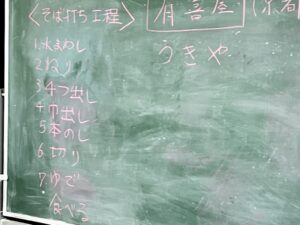 〈そば打ち工程〉
1.水まわし
2.ねり
3.4つ出し
4.巾出し
5.本のし
6.切り
7.ゆで
食べる
有喜屋 (京都
うきや